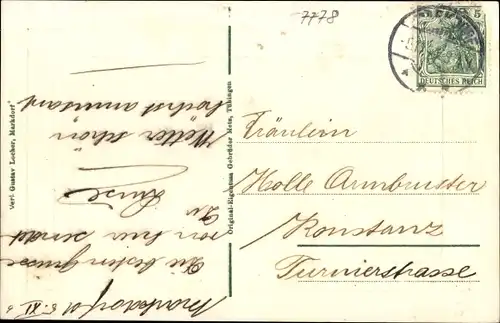 7778
5
DEUTSCHES REICH
Verl. Gustav Locher, Markdorf
Original-Eigentum Gebrüder Metz, Tübingen
Markdorf d. 5. XI.
Die besten Grüsse
von hier sendet
Dir
Luise
Wetter schön
höchst amüsant
Fräulein
Holle Armbruster
Konstanz
Turnierstrasse